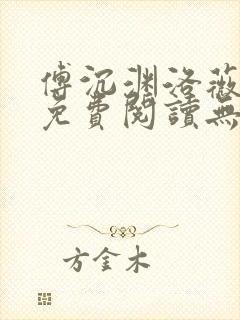 傅沉渊洛薇
免費閱讀無
方金木